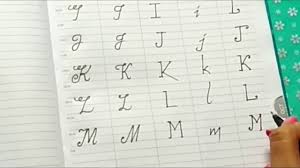 I I i I
J J J j J
K K K k K
L L L l L
M M M m M